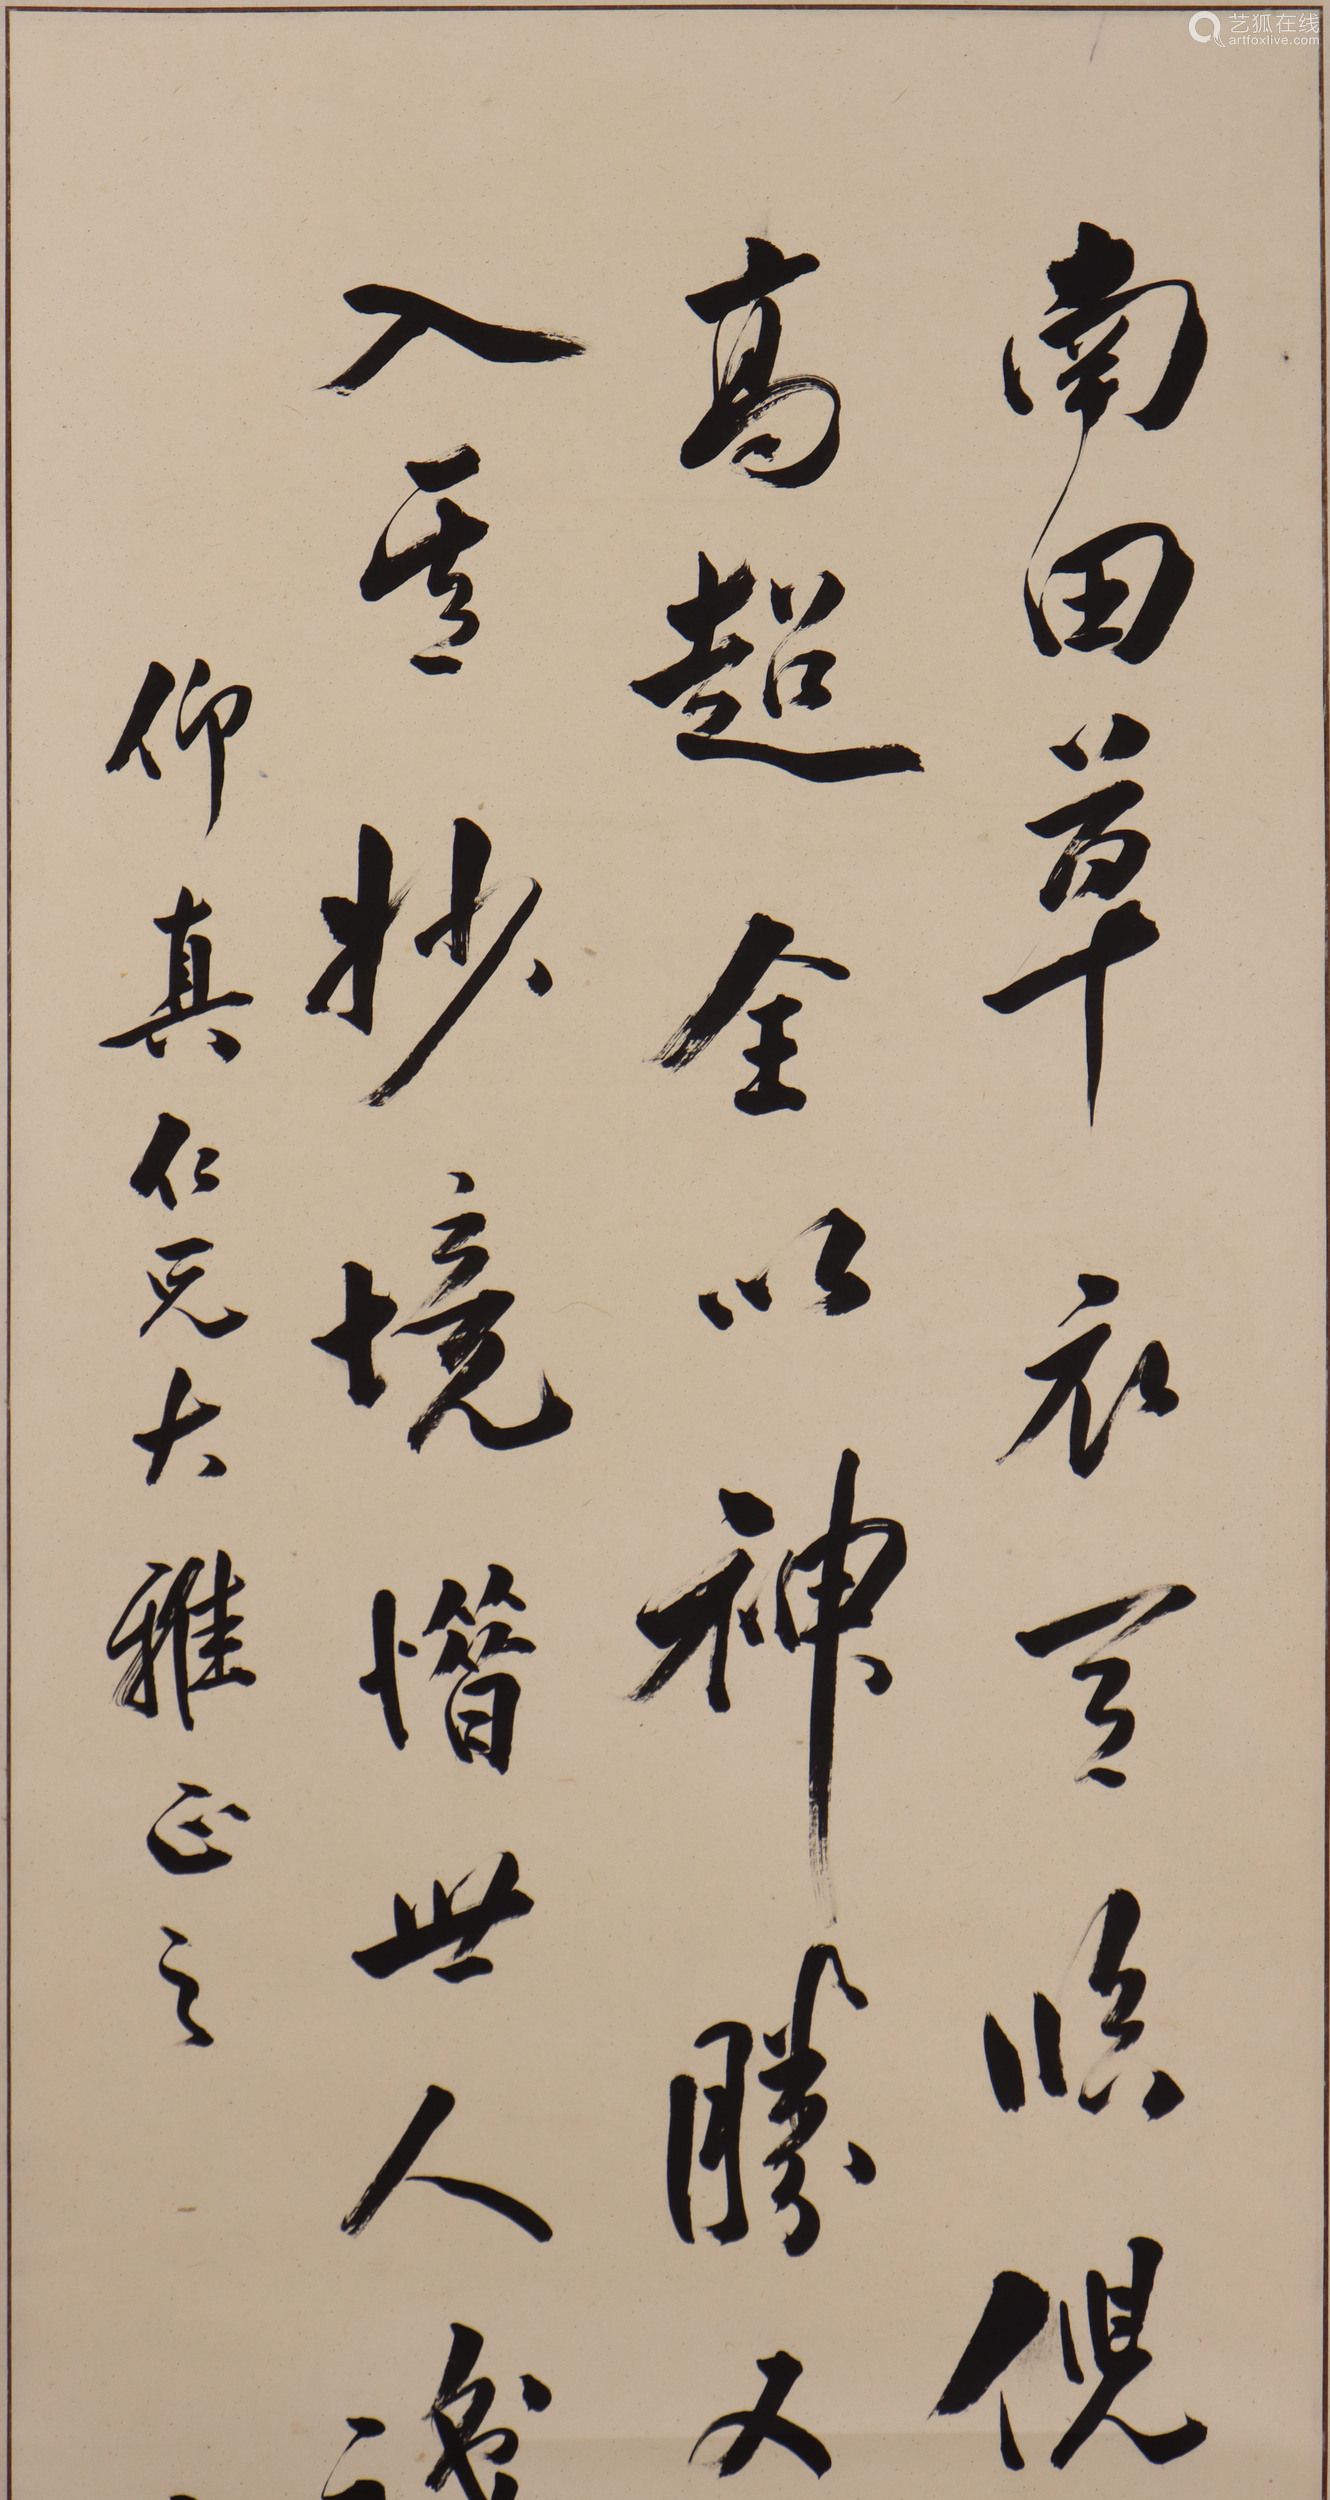 南田草衣臨倪
高超全以神勝又
入妙境惜世人
仰真仁兄大雅正之
艺狐在线
artfoxlive.com